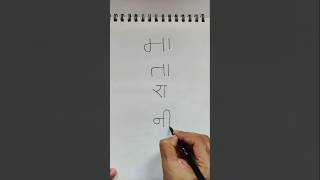 मा
ता
रा
नी